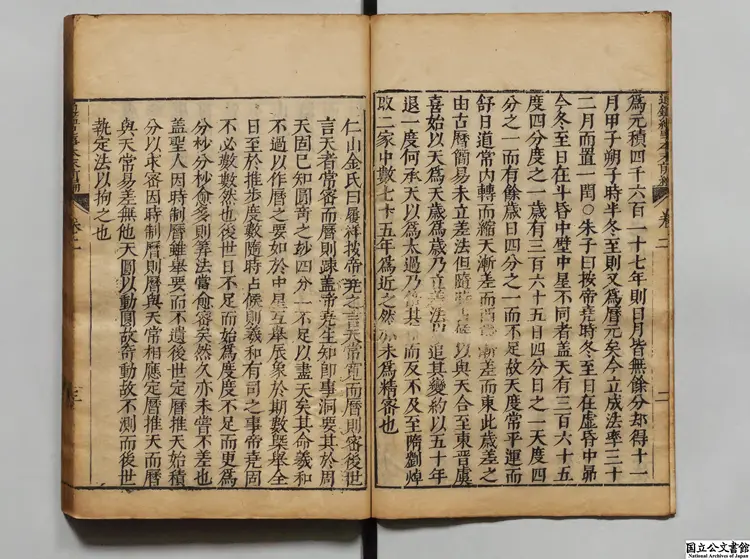 為元積四千六百一十七年則日月皆無餘分却得十一
月甲子朔子時半冬至則又為曆元矣今立成法率三十
二月而置一閏○朱子曰按帝堯時冬至日在虛昏中昴
今冬至日在斗昏中壁中星不同者蓋天有三百六十五
度四分度之一歲有三百六十五日四分日之一天度四
分之一而有餘歲日四分之一而不足故天度常平運而
舒日道常內轉而縮天漸差而西歲漸差而東此歲差之
由古曆簡易未立差法但隨時占候以與天合至東晉虞
喜始以天為天歲為歲乃立差法以追其變約以五十年
退一度何承天以為太過乃倍其年而反不及至隋劉焯
取二家中數七十五年為近之然亦未為精密也
卷之二
二
仁山金氏曰履祥按帝堯之言天常寬而曆則密後世
言天者常密而曆則疎蓋帝堯生知即事洞要其於周
天固已知圓竒之妙四分一不足以盡天矣其命羲和
不過以作曆之要如於中星互舉辰象於期數槩舉全
日至於推步度數隨時占候則羲和有司之事帝堯固
不必數數然也後世日不足而始為度度不足而更為
分秒分秒愈多則筭法當愈密矣然久亦未嘗不差也
蓋聖人因時制曆雖舉要而不遺後世定曆推天始積
分以求密因時制曆則曆與天常相應定曆推天而曆
與天常易差無他天圓以動圓故竒動故不測而後世
執定法以拘之也
国立公文書館
National Archives of Japan